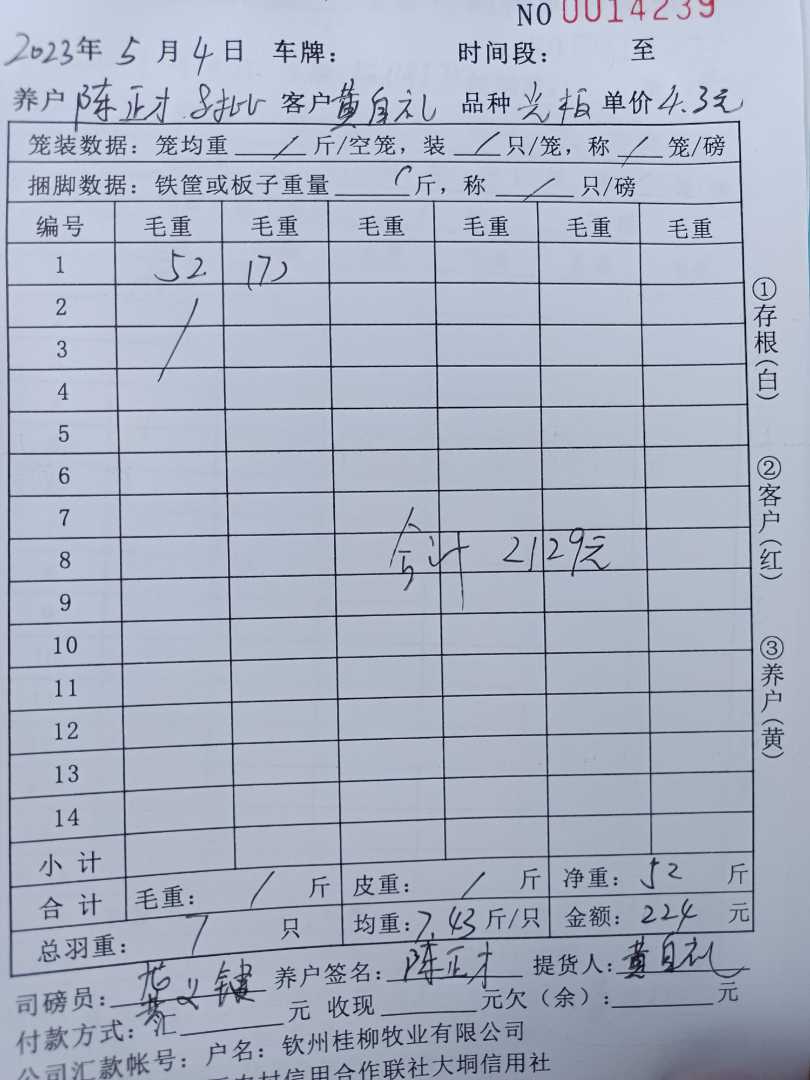 NO 0014239
2023年 5 月 4 日 车牌： 时间段： 至
养户 陈正才 客户 黄自礼 品种 光板 单价 4.3元
笼装数据：笼均重 / 斤/空笼，装 / 只/笼，称 / 笼/磅
捆脚数据：铁筐或板子重量 斤，称 / 只/磅
编号 毛重 毛重 毛重 毛重 毛重 毛重
1 52 (7)
2 /
3
4
5
6
7
8 合计 2129元
9
10
11
12
13
14
小 计
合 计 毛重： / 斤 皮重： / 斤 净重：52 斤
总羽重： 7 只 均重：7.43 斤/只 金额：224 元
司磅员： 养户签名：陈正才 提货人：黄自礼
付款方式：汇 元 收现 元欠（余）： 元
公司汇款帐号：户名：钦州桂柳牧业有限公司
农村信用合作联社大垌信用社
①存根（白）
②客户（红）
③养户（黄）